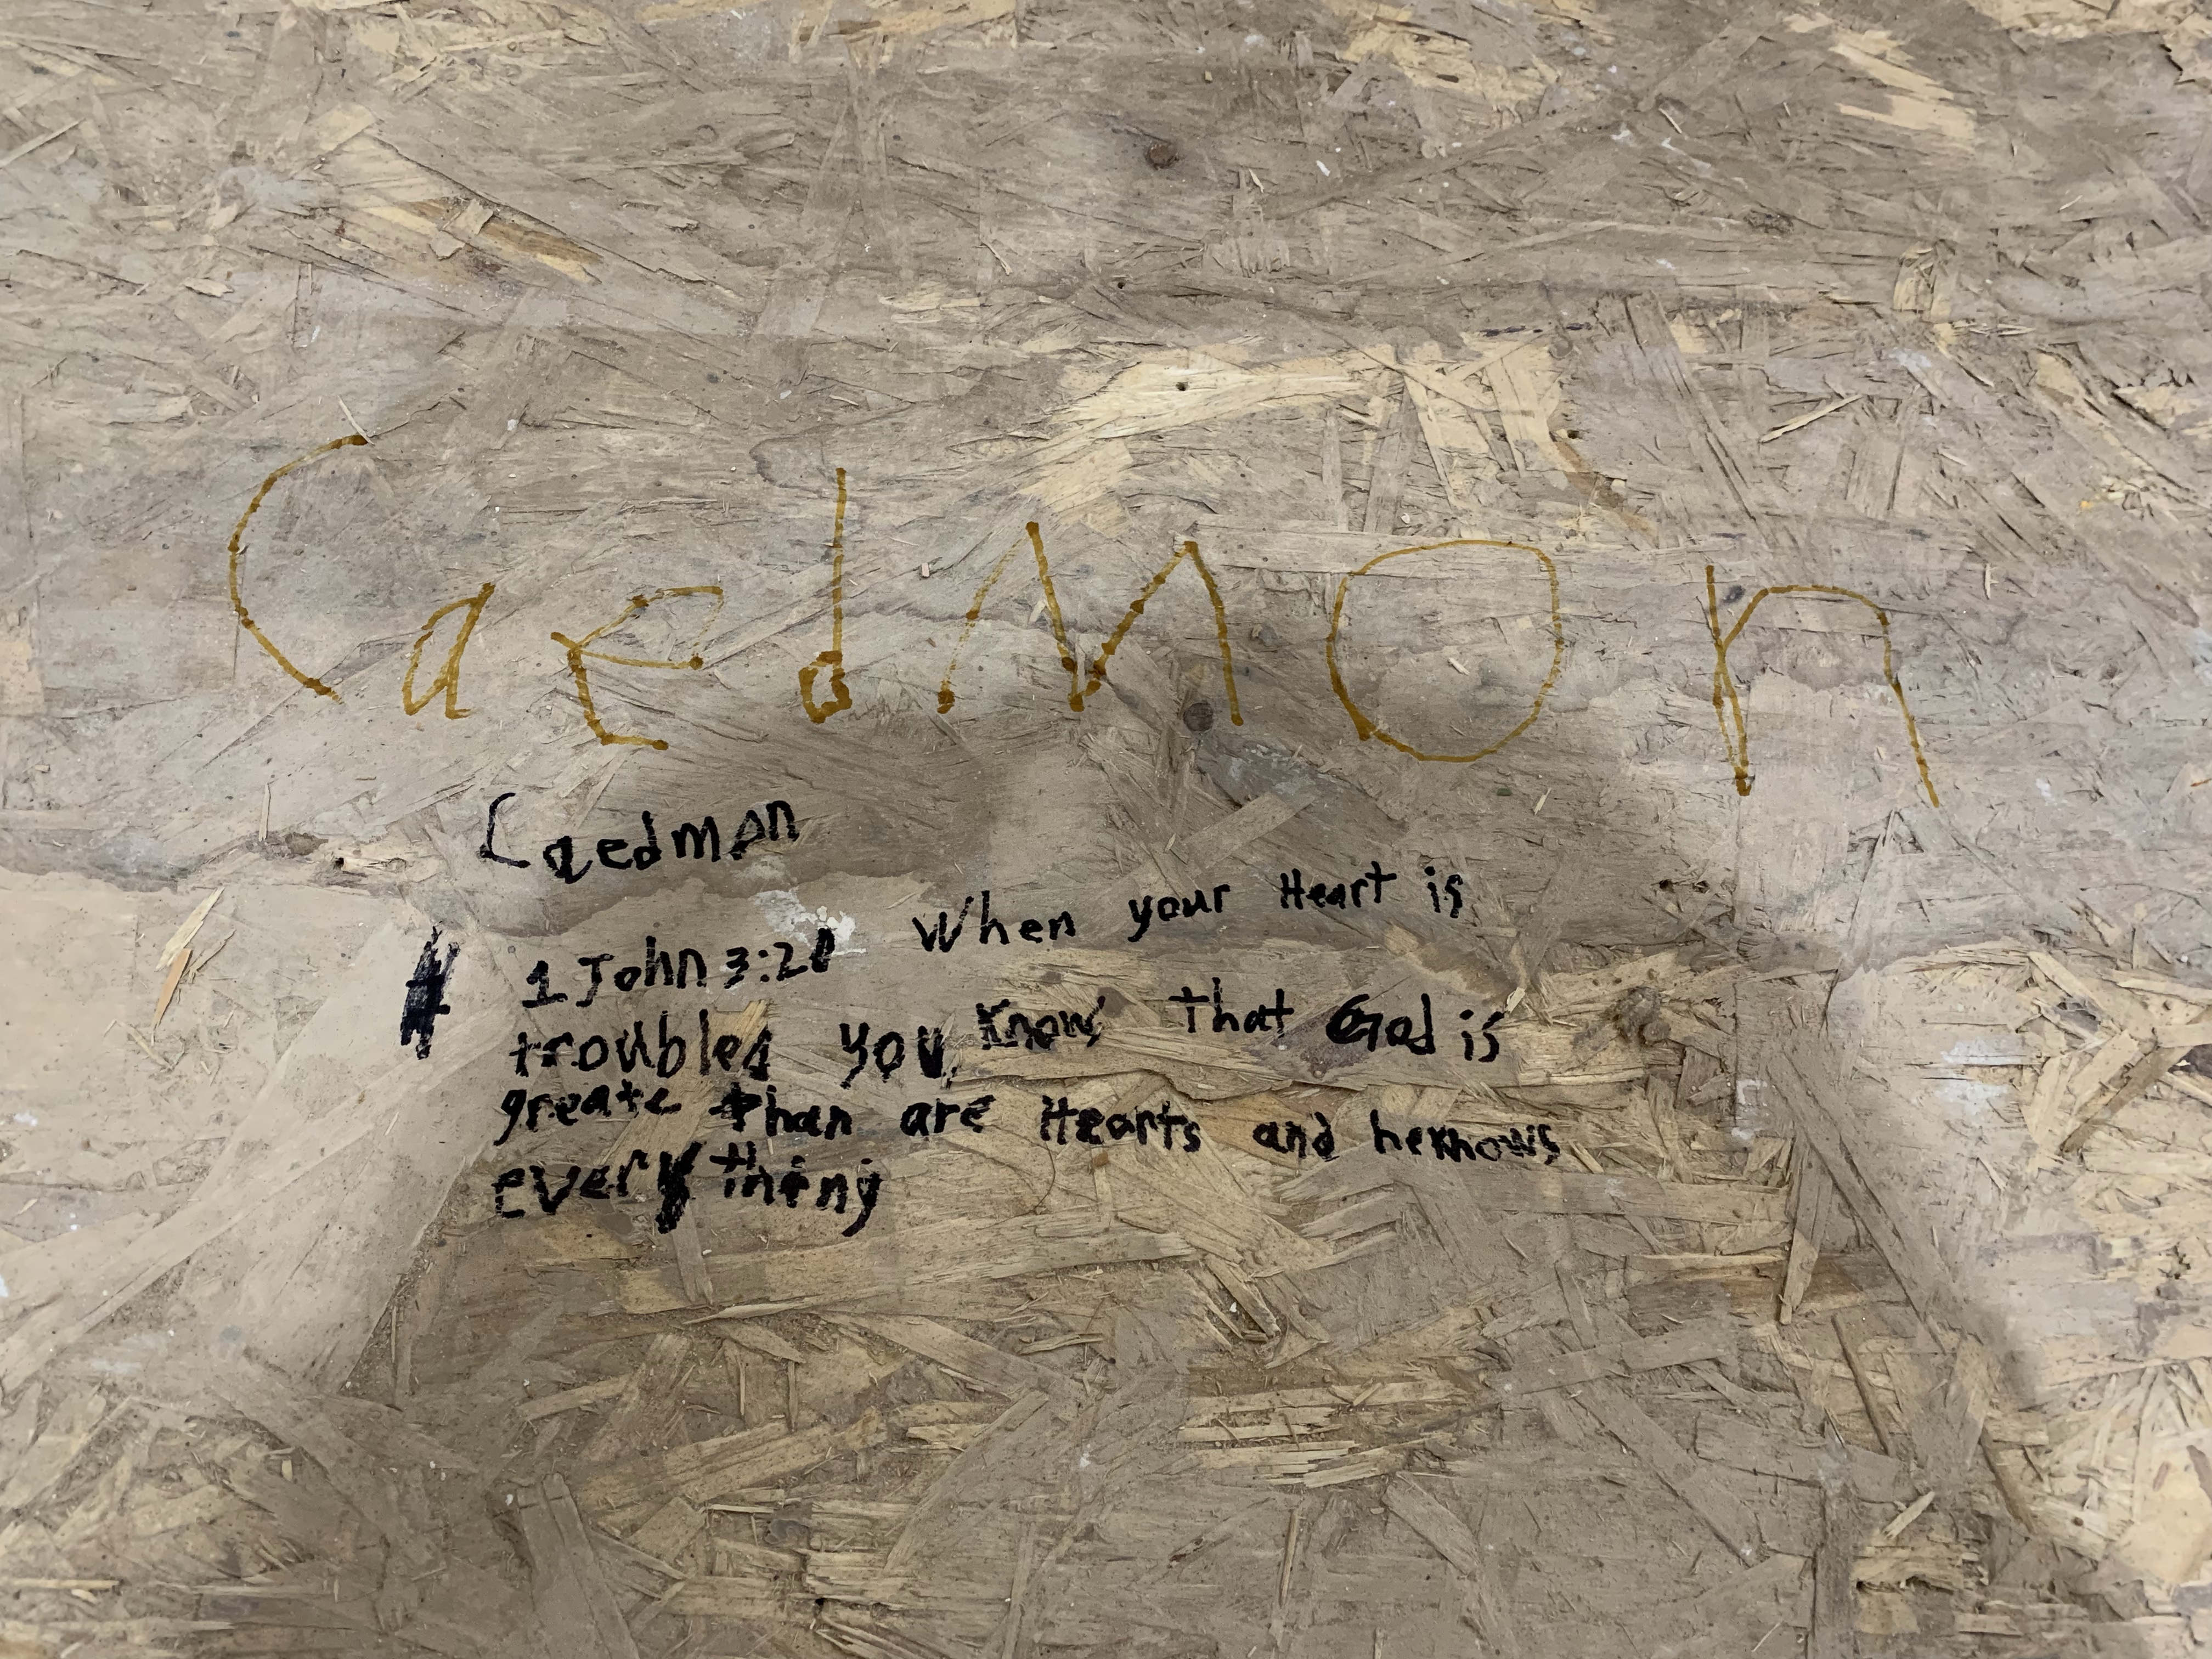 CaedMOn
Caedmon
1 John 3:20 When your Heart is
troubled you, Know that God is
greate than are Hearts and heknows
everything